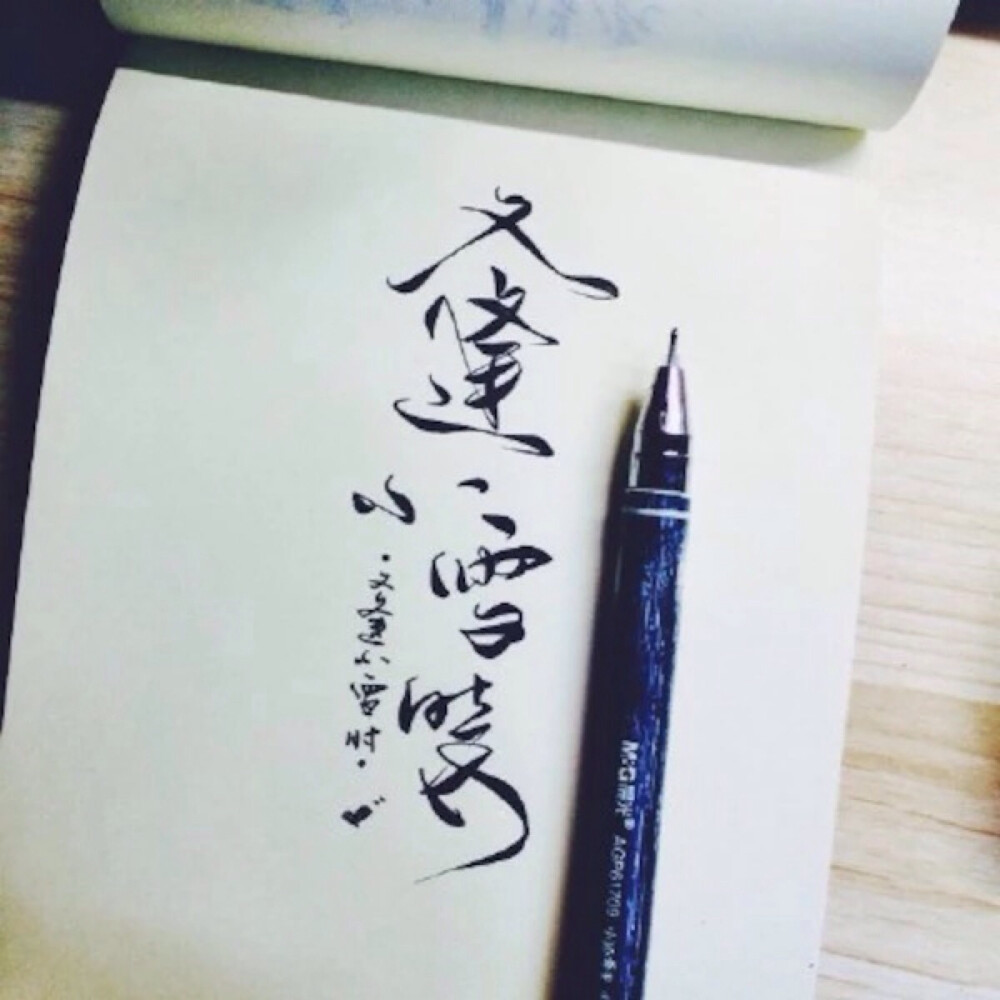 又逢小雪時
·又逢小雪时·
M&G晨光® AGP61709